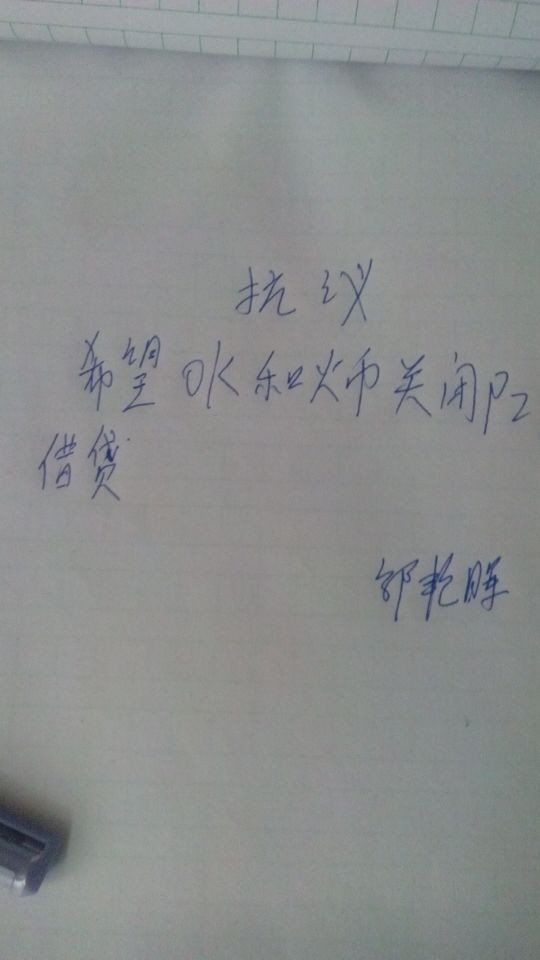 抗议
希望OK和火币关闭P2
借贷
邹艳晖